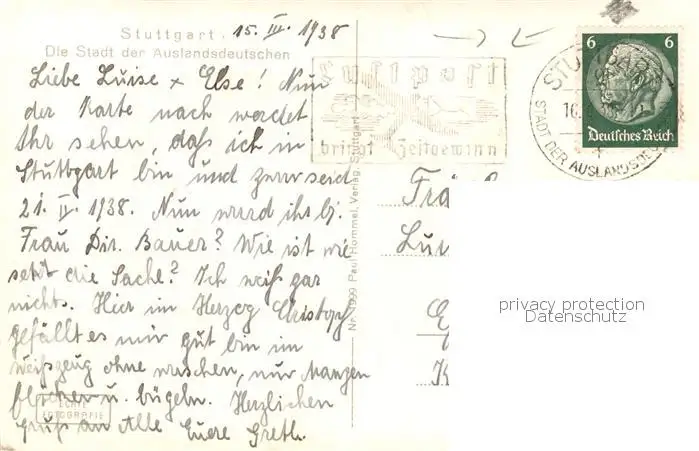 Stuttgart
15. IV. 1938
Die Stadt der Auslandsdeutschen
Liebe Luise + Else! Nun
der Karte nach werdet
Ihr sehen, daß ich in
Stuttgart bin und zwar seit
21. IV. 1938. Nun ihr b.
Frau Dir. Bauer? Wie ist
die Sache? Ich weiß gar
nichts. Hier im Herzog Christoph
gefällt es mir gut bin im
Weißzeug ohne waschen, nur Mangen
flicken u. bügeln. Herzlichen
Gruß an Alle Eure Greth.
ECHTE
FOTOGRAFIE
Nr. 1999 Paul Hommel, Verlag, Stuttgart
Flugpost
bringt Zeitgewinn
STUTTGART
16
STADT DER AUSLANDSDEU
6 6
Deutsches Reich
Frä
Lu
privacy protection
Datenschutz